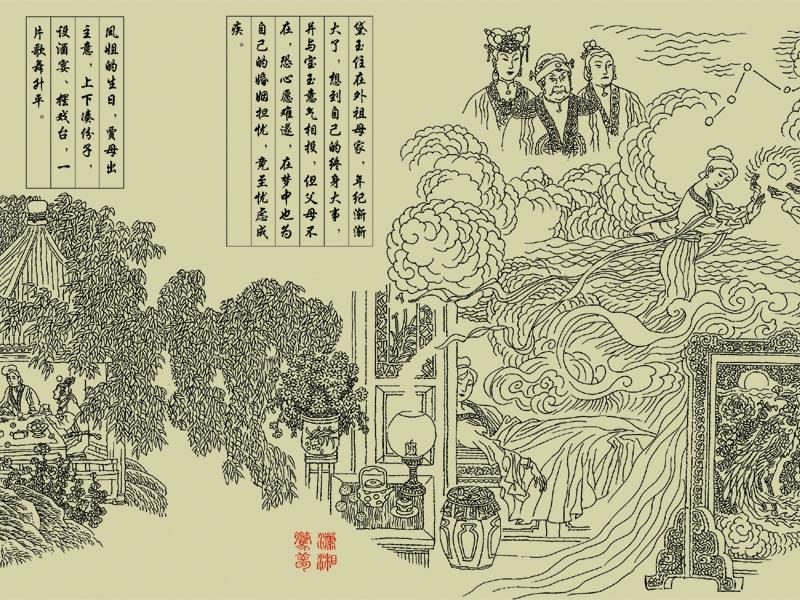 黛玉住在外祖母家，年纪渐渐
大了，想到自己的终身大事，
并与宝玉意气相投，但父母不
在，恐心愿难遂，在梦中也为
自己的婚姻担忧，竟至忧虑成
疾。
凤姐的生日，贾母出
主意，上下凑份子，
设酒宴、摆戏台，一
片歌舞升平。
瀟湘
驚夢